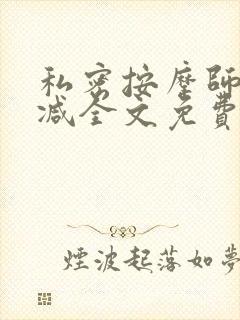 私密按摩師
减全文免費
煙波起落如夢